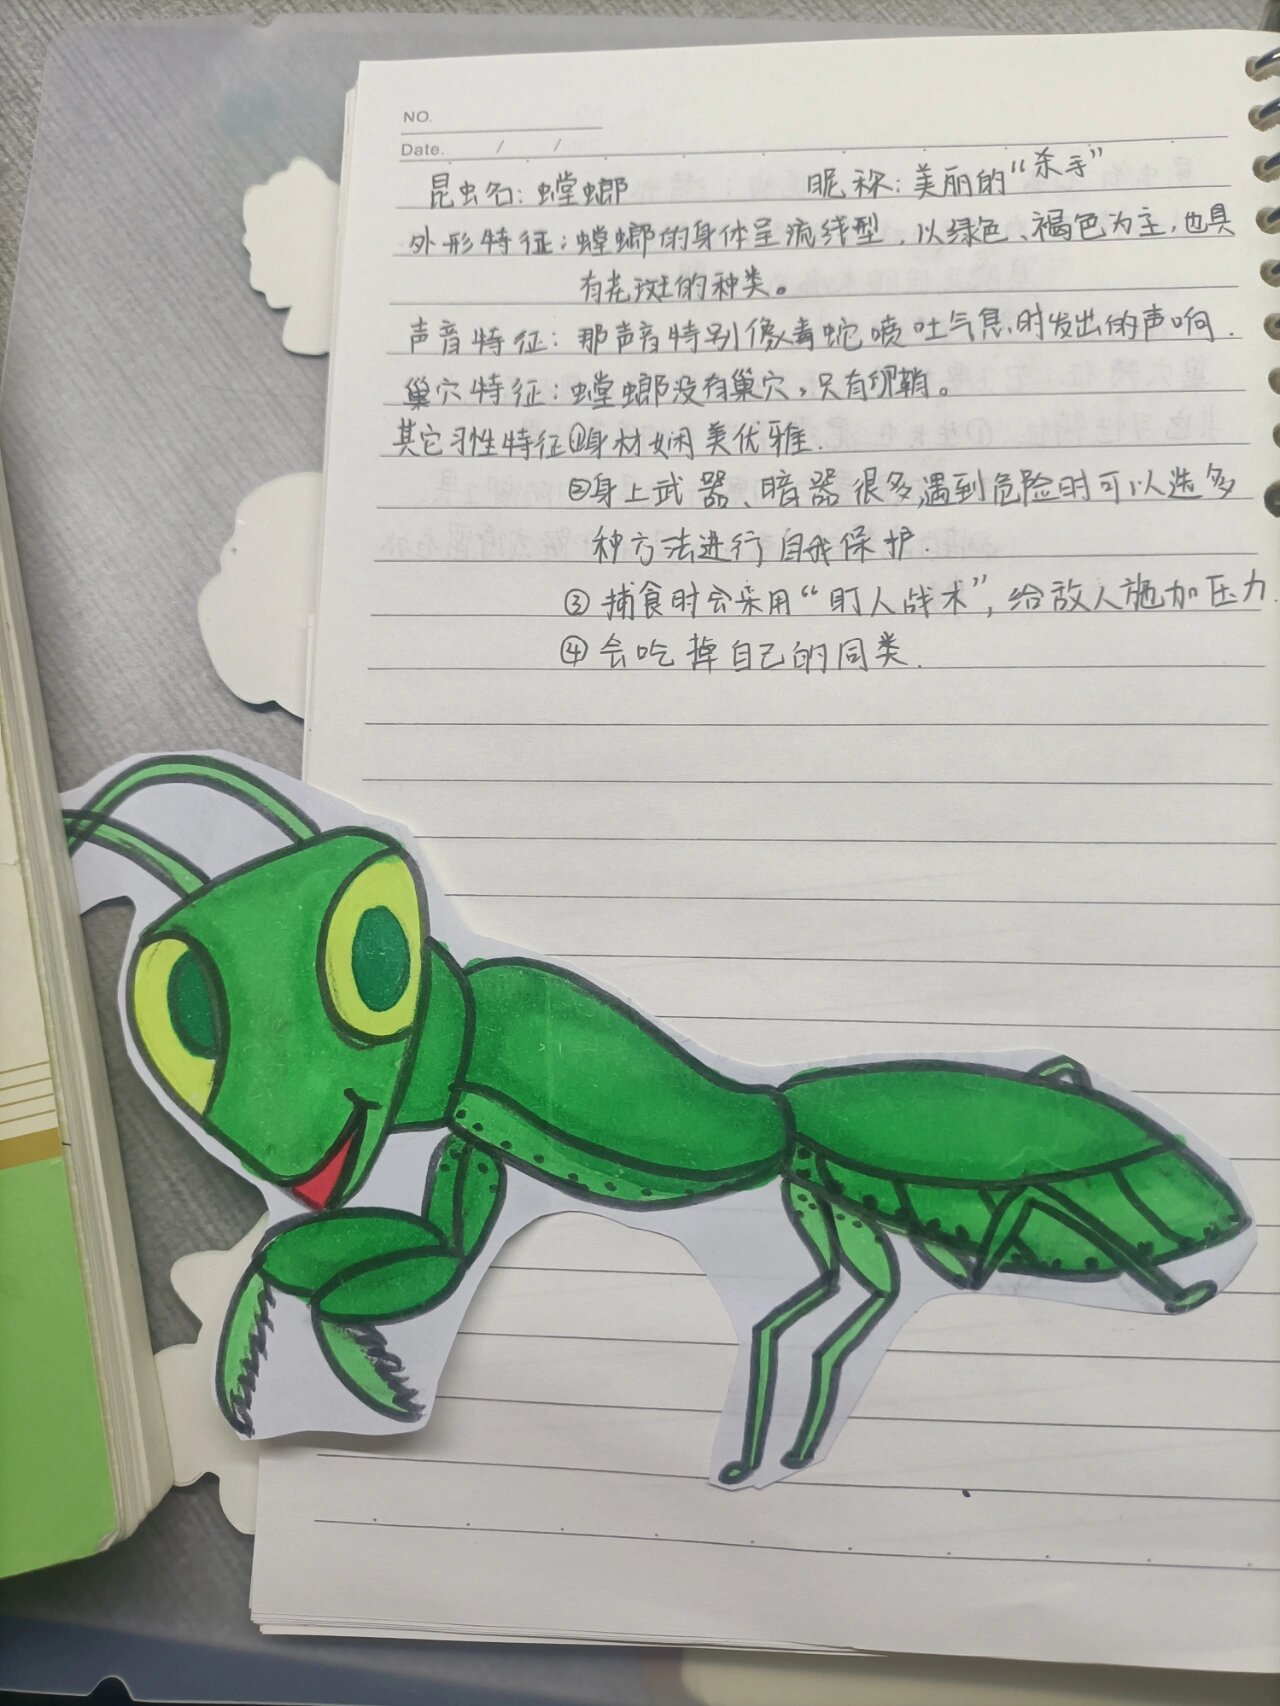 NO.
Date. / /
昆虫名：螳螂 昵称：美丽的“杀手”
外形特征：螳螂的身体呈流线型，以绿色、褐色为主，也具
有花斑的种类。
声音特征：那声音特别像毒蛇喷吐气息时发出的声响.
巢穴特征：螳螂没有巢穴，只有卵鞘。
其它习性特征①身材娴美优雅.
②身上武器、暗器很多,遇到危险时可以选多
种方法进行自我保护.
③捕食时会采用“盯人战术”，给敌人施加压力.
④会吃掉自己的同类.